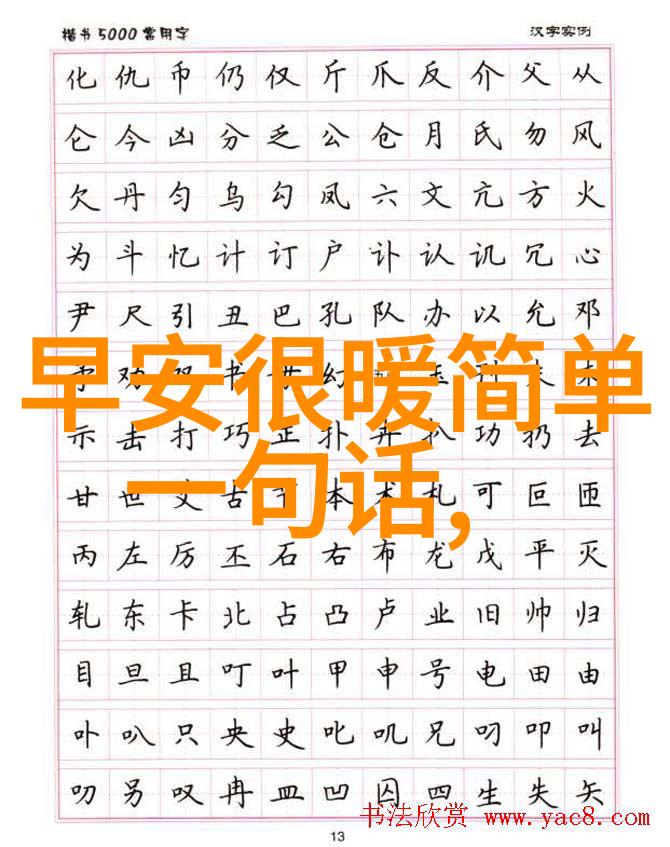 楷书5000常用字 汉字实例
化仇币仍仅斤爪反介父从
仑今凶分乏公仓月氏勿风
欠丹匀乌勾凤六文亢方火
为斗忆计订户讣认讥冗心
尹尺引丑巴孔队办以允邓
早安很暖简单
示击打巧正扑卉扒功扔去
一句话,
甘世古本术札可叵匝
丙左厉丕石右布龙戊平灭
轧东卡北占凸卢业旧帅归
目旦且叮叶甲申号电田由
卟叭只央史叱叽兄叼叩叫
叻另叹冉皿凹囚四生失矢
书法欣赏 www.yac8.com
13